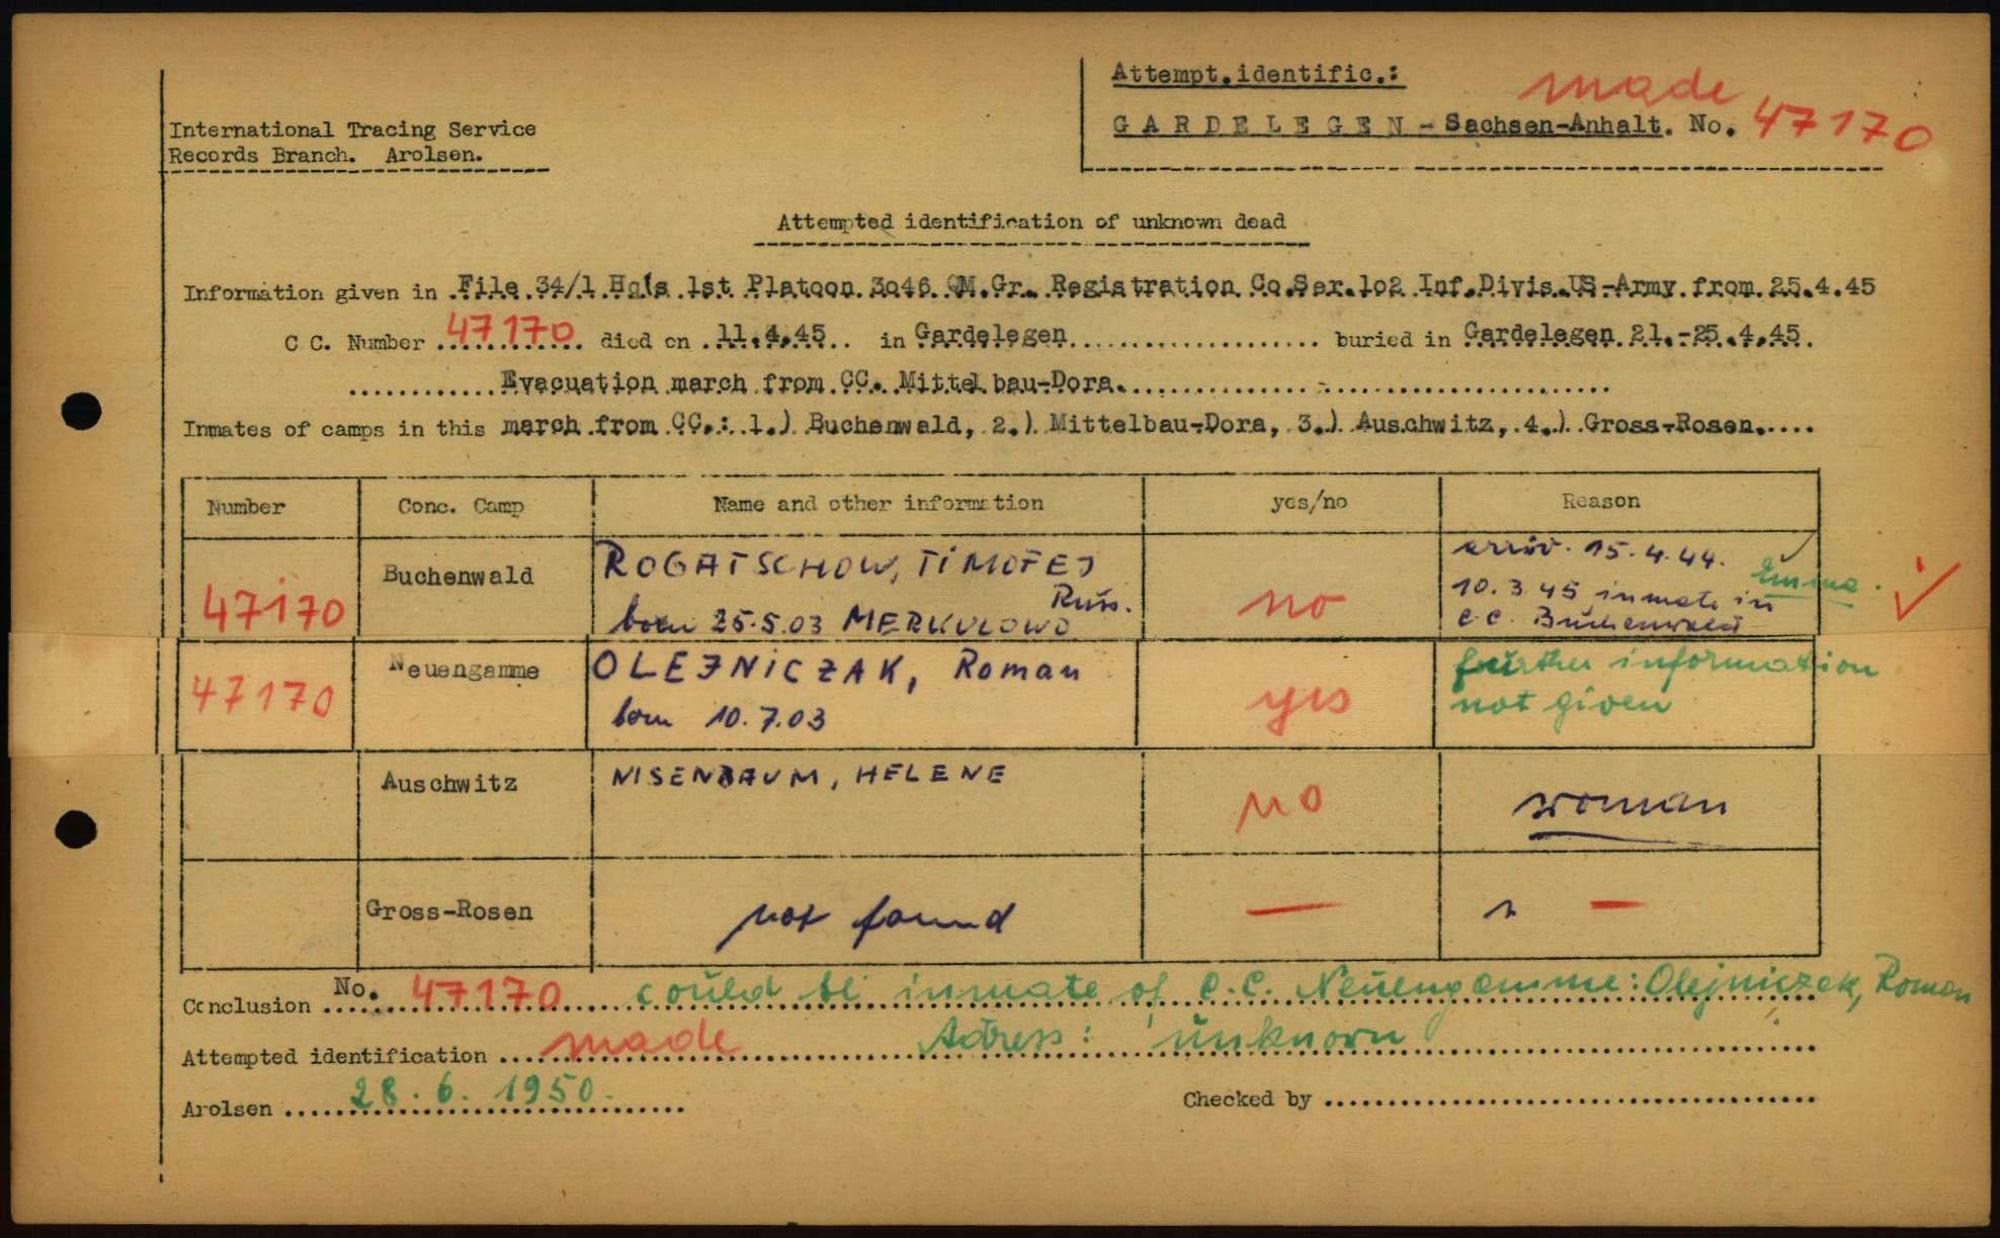 Attempt.identific.: made
GARDELEGEN - Sachsen-Anhalt. No. 47170
International Tracing Service
Records Branch. Arolsen.
Attempted identification of unknown dead
Information given in File 34/1 Hq's 1st Platoon 3o46 QM.Gr. Registration Co.Ser.1o2 Inf.Divis.US-Army from 25.4.45
C C. Number 47170 died on 11.4.45 in Gardelegen buried in Gardelegen 21.-25.4.45.
Evacuation march from CC. Mittelbau-Dora.
Inmates of camps in this march from CC.: 1.) Buchenwald, 2.) Mittelbau-Dora, 3.) Auschwitz, 4.) Gross-Rosen.
Number Conc. Camp Name and other information yes/no Reason
47170 Buchenwald ROGATSCHOW, TIMOFEJ Russ. born 25.5.03 MERKULOWO no arriv. 15.4.44. 10.3.45 inmate in C.C. Buchenwald
47170 Neuengamme OLEJNICZAK, Roman born 10.7.03 yes further information not given
Auschwitz NISENBAUM, HELENE no woman
Gross-Rosen not found — —
Conclusion No. 47170 could be inmate of C.C. Neuengamme: Olejniczak, Roman
Attempted identification made Adress: unknown
Arolsen 28.6.1950. Checked by